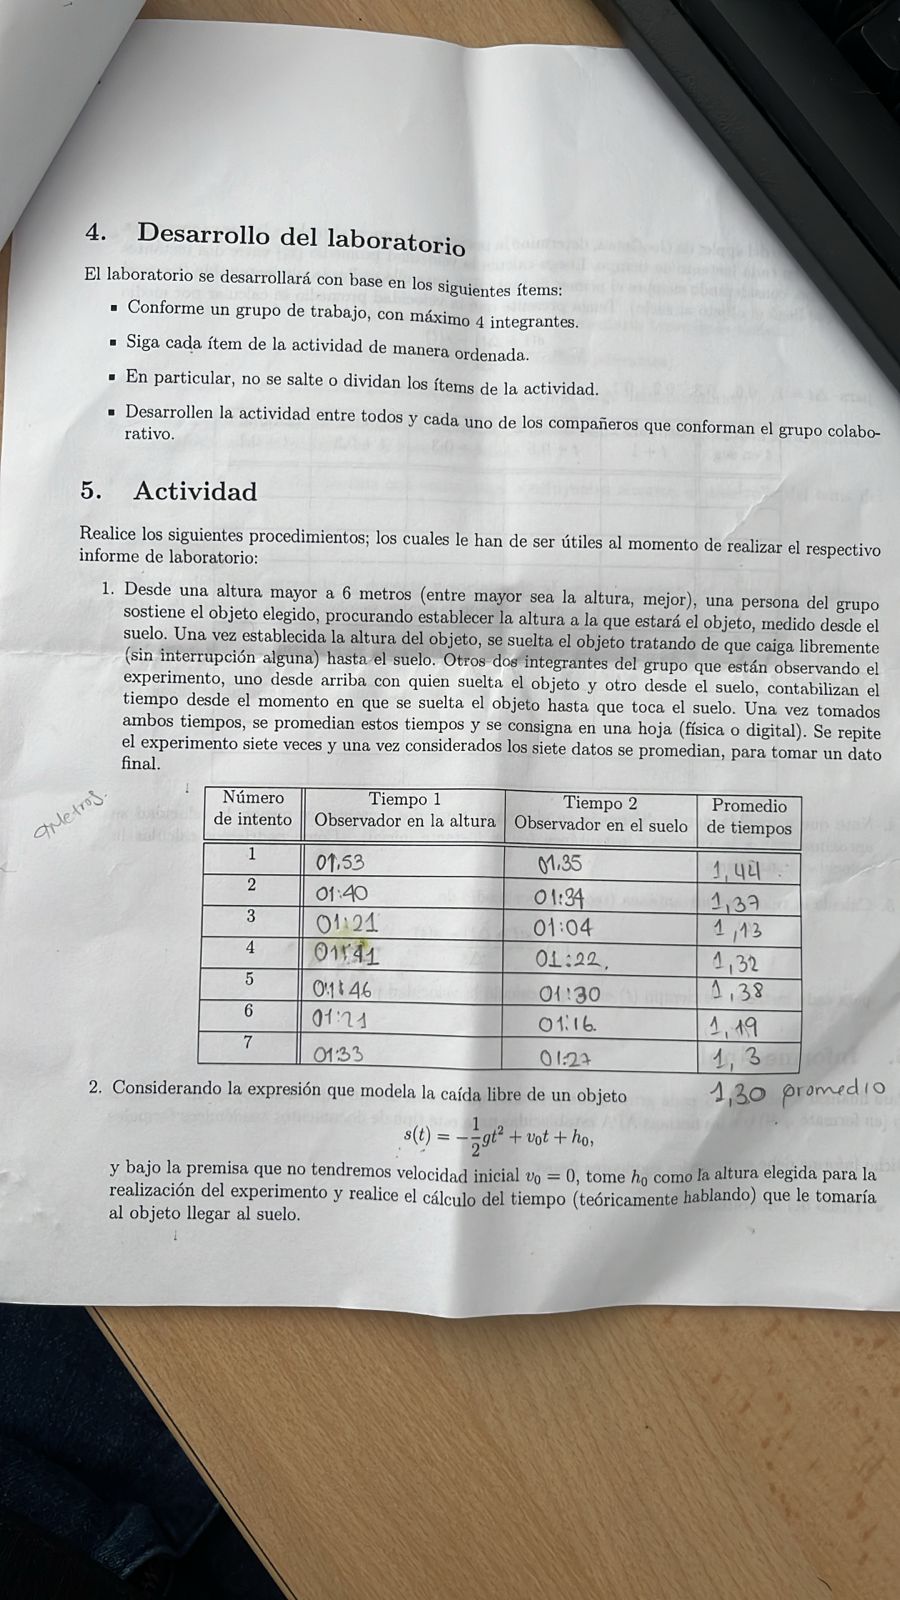 4. Desarrollo del laboratorio
El laboratorio se desarrollará con base en los siguientes ítems:
▪ Conforme un grupo de trabajo, con máximo 4 integrantes.
▪ Siga cada ítem de la actividad de manera ordenada.
▪ En particular, no se salte o dividan los ítems de la actividad.
▪ Desarrollen la actividad entre todos y cada uno de los compañeros que conforman el grupo colabo-
rativo.
5. Actividad
Realice los siguientes procedimientos; los cuales le han de ser útiles al momento de realizar el respectivo
informe de laboratorio:
1. Desde una altura mayor a 6 metros (entre mayor sea la altura, mejor), una persona del grupo
sostiene el objeto elegido, procurando establecer la altura a la que estará el objeto, medido desde el
suelo. Una vez establecida la altura del objeto, se suelta el objeto tratando de que caiga libremente
(sin interrupción alguna) hasta el suelo. Otros dos integrantes del grupo que están observando el
experimento, uno desde arriba con quien suelta el objeto y otro desde el suelo, contabilizan el
tiempo desde el momento en que se suelta el objeto hasta que toca el suelo. Una vez tomados
ambos tiempos, se promedian estos tiempos y se consigna en una hoja (física o digital). Se repite
el experimento siete veces y una vez considerados los siete datos se promedian, para tomar un dato
final.
9Metros.
Número de intento Tiempo 1 Observador en la altura Tiempo 2 Observador en el suelo Promedio de tiempos
1 01.53 01.35 1,44
2 01:40 01:34 1,37
3 01:21 01:04 1,13
4 01:41 01:22. 1,32
5 01:46 01:30 1,38
6 01:21 01:16. 1,19
7 01:33 01:27 1,3
1,30 promedio
2. Considerando la expresión que modela la caída libre de un objeto
s(t) = −1/2gt² + v₀t + h₀,
y bajo la premisa que no tendremos velocidad inicial v₀ = 0, tome h₀ como la altura elegida para la
realización del experimento y realice el cálculo del tiempo (teóricamente hablando) que le tomaría
al objeto llegar al suelo.